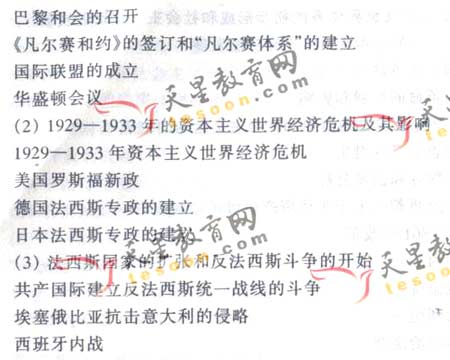 巴黎和会的召开
《凡尔赛和约》的签订和“凡尔赛体系”的建立
国际联盟的成立
华盛顿会议
(2) 1929—1933 年的资本主义世界经济危机及其影响
1929—1933 年资本主义世界经济危机
美国罗斯福新政
德国法西斯专政的建立
日本法西斯专政的建松
(3) 法西斯国家的扩张和反法西斯斗争的开始
共产国际建立反法西斯统一战线的斗争
埃塞俄比亚抗击意大利的侵略
西班牙内战
天星教育网
tesoon.com
天星
tes
天星教育网
tesoon.com
天星教
tesoo